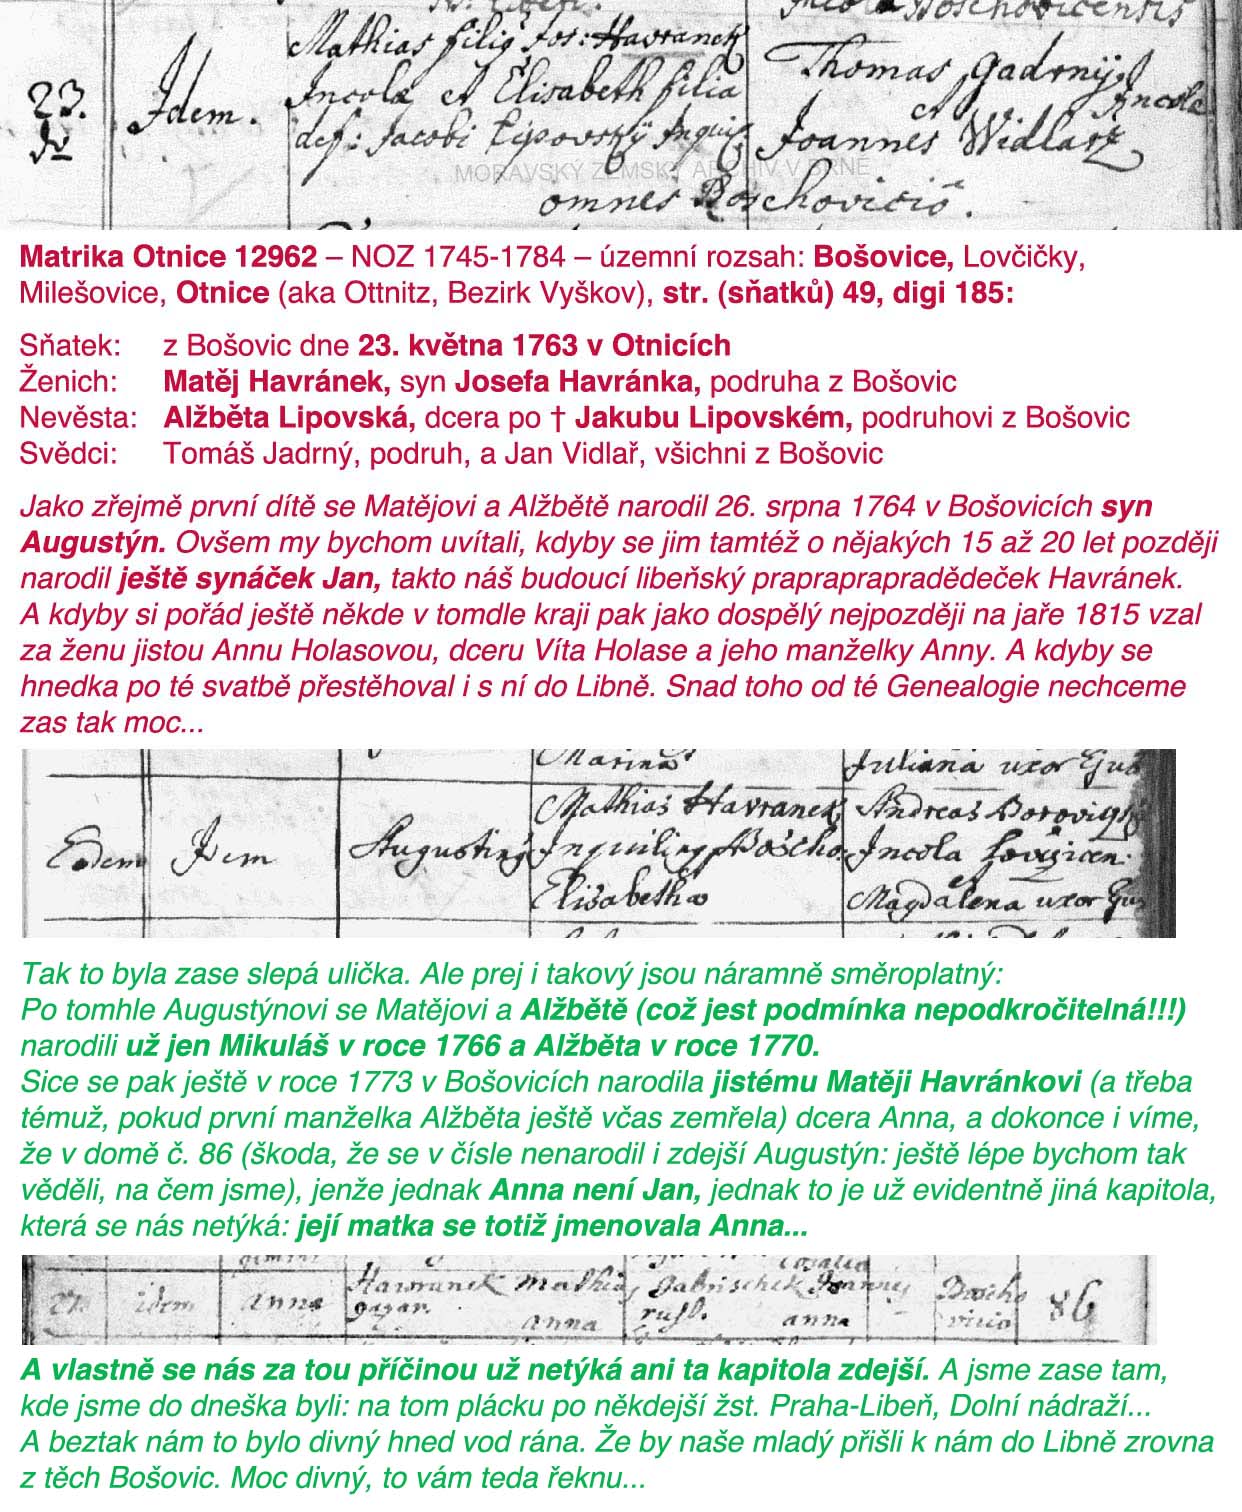 Incola Boschovicensis
23.
Idem.
Mathias filiq Jos: Havranek
Incolæ et Elisabeth filia
def: Jacobi Lipovsky Inqui:
Thomas Gadrnÿ Incola
et
Joannes Widlarz
omnes Boschovicio.
MORAVSKÝ ZEMSKÝ ARCHIV V BRNĚ
Matrika Otnice 12962 – NOZ 1745-1784 – územní rozsah: Bošovice, Lovčičky,
Milešovice, Otnice (aka Ottnitz, Bezirk Vyškov), str. (sňatků) 49, digi 185:
Sňatek: z Bošovic dne 23. května 1763 v Otnicích
Ženich: Matěj Havránek, syn Josefa Havránka, podruha z Bošovic
Nevěsta: Alžběta Lipovská, dcera po † Jakubu Lipovském, podruhovi z Bošovic
Svědci: Tomáš Jadrný, podruh, a Jan Vidlař, všichni z Bošovic
Jako zřejmě první dítě se Matějovi a Alžbětě narodil 26. srpna 1764 v Bošovicích syn
Augustýn. Ovšem my bychom uvítali, kdyby se jim tamtéž o nějakých 15 až 20 let později
narodil ještě synáček Jan, takto náš budoucí libeňský praprapraprapradědeček Havránek.
A kdyby si pořád ještě někde v tomdle kraji pak jako dospělý nejpozději na jaře 1815 vzal
za ženu jistou Annu Holasovou, dceru Víta Holase a jeho manželky Anny. A kdyby se
hnedka po té svatbě přestěhoval i s ní do Libně. Snad toho od té Genealogie nechceme
zas tak moc...
Marina
Juliana uxor
Eodem
Idem
Augustinq
Mathias Havranek
Inquilinq Boscho.
Elisabetha
Andreas
Incola
et
Magdalena uxor
Tak to byla zase slepá ulička. Ale prej i takový jsou náramně směroplatný:
Po tomhle Augustýnovi se Matějovi a Alžbětě (což jest podmínka nepodkročitelná!!!)
narodili už jen Mikuláš v roce 1766 a Alžběta v roce 1770.
Sice se pak ještě v roce 1773 v Bošovicích narodila jistému Matěji Havránkovi (a třeba
témuž, pokud první manželka Alžběta ještě včas zemřela) dcera Anna, a dokonce i víme,
že v domě č. 86 (škoda, že se v čísle nenarodil i zdejší Augustýn: ještě lépe bychom tak
věděli, na čem jsme), jenže jednak Anna není Jan, jednak to je už evidentně jiná kapitola,
která se nás netýká: její matka se totiž jmenovala Anna...
idem
anna
Hawranek Mathias
anna
Gabrischek Joannes
rusl. anna
Boscho
vicio
86
A vlastně se nás za tou příčinou už netýká ani ta kapitola zdejší. A jsme zase tam,
kde jsme do dneška byli: na tom plácku po někdejší žst. Praha-Libeň, Dolní nádraží...
A beztak nám to bylo divný hned vod rána. Že by naše mladý přišli k nám do Libně zrovna
z těch Bošovic. Moc divný, to vám teda řeknu...